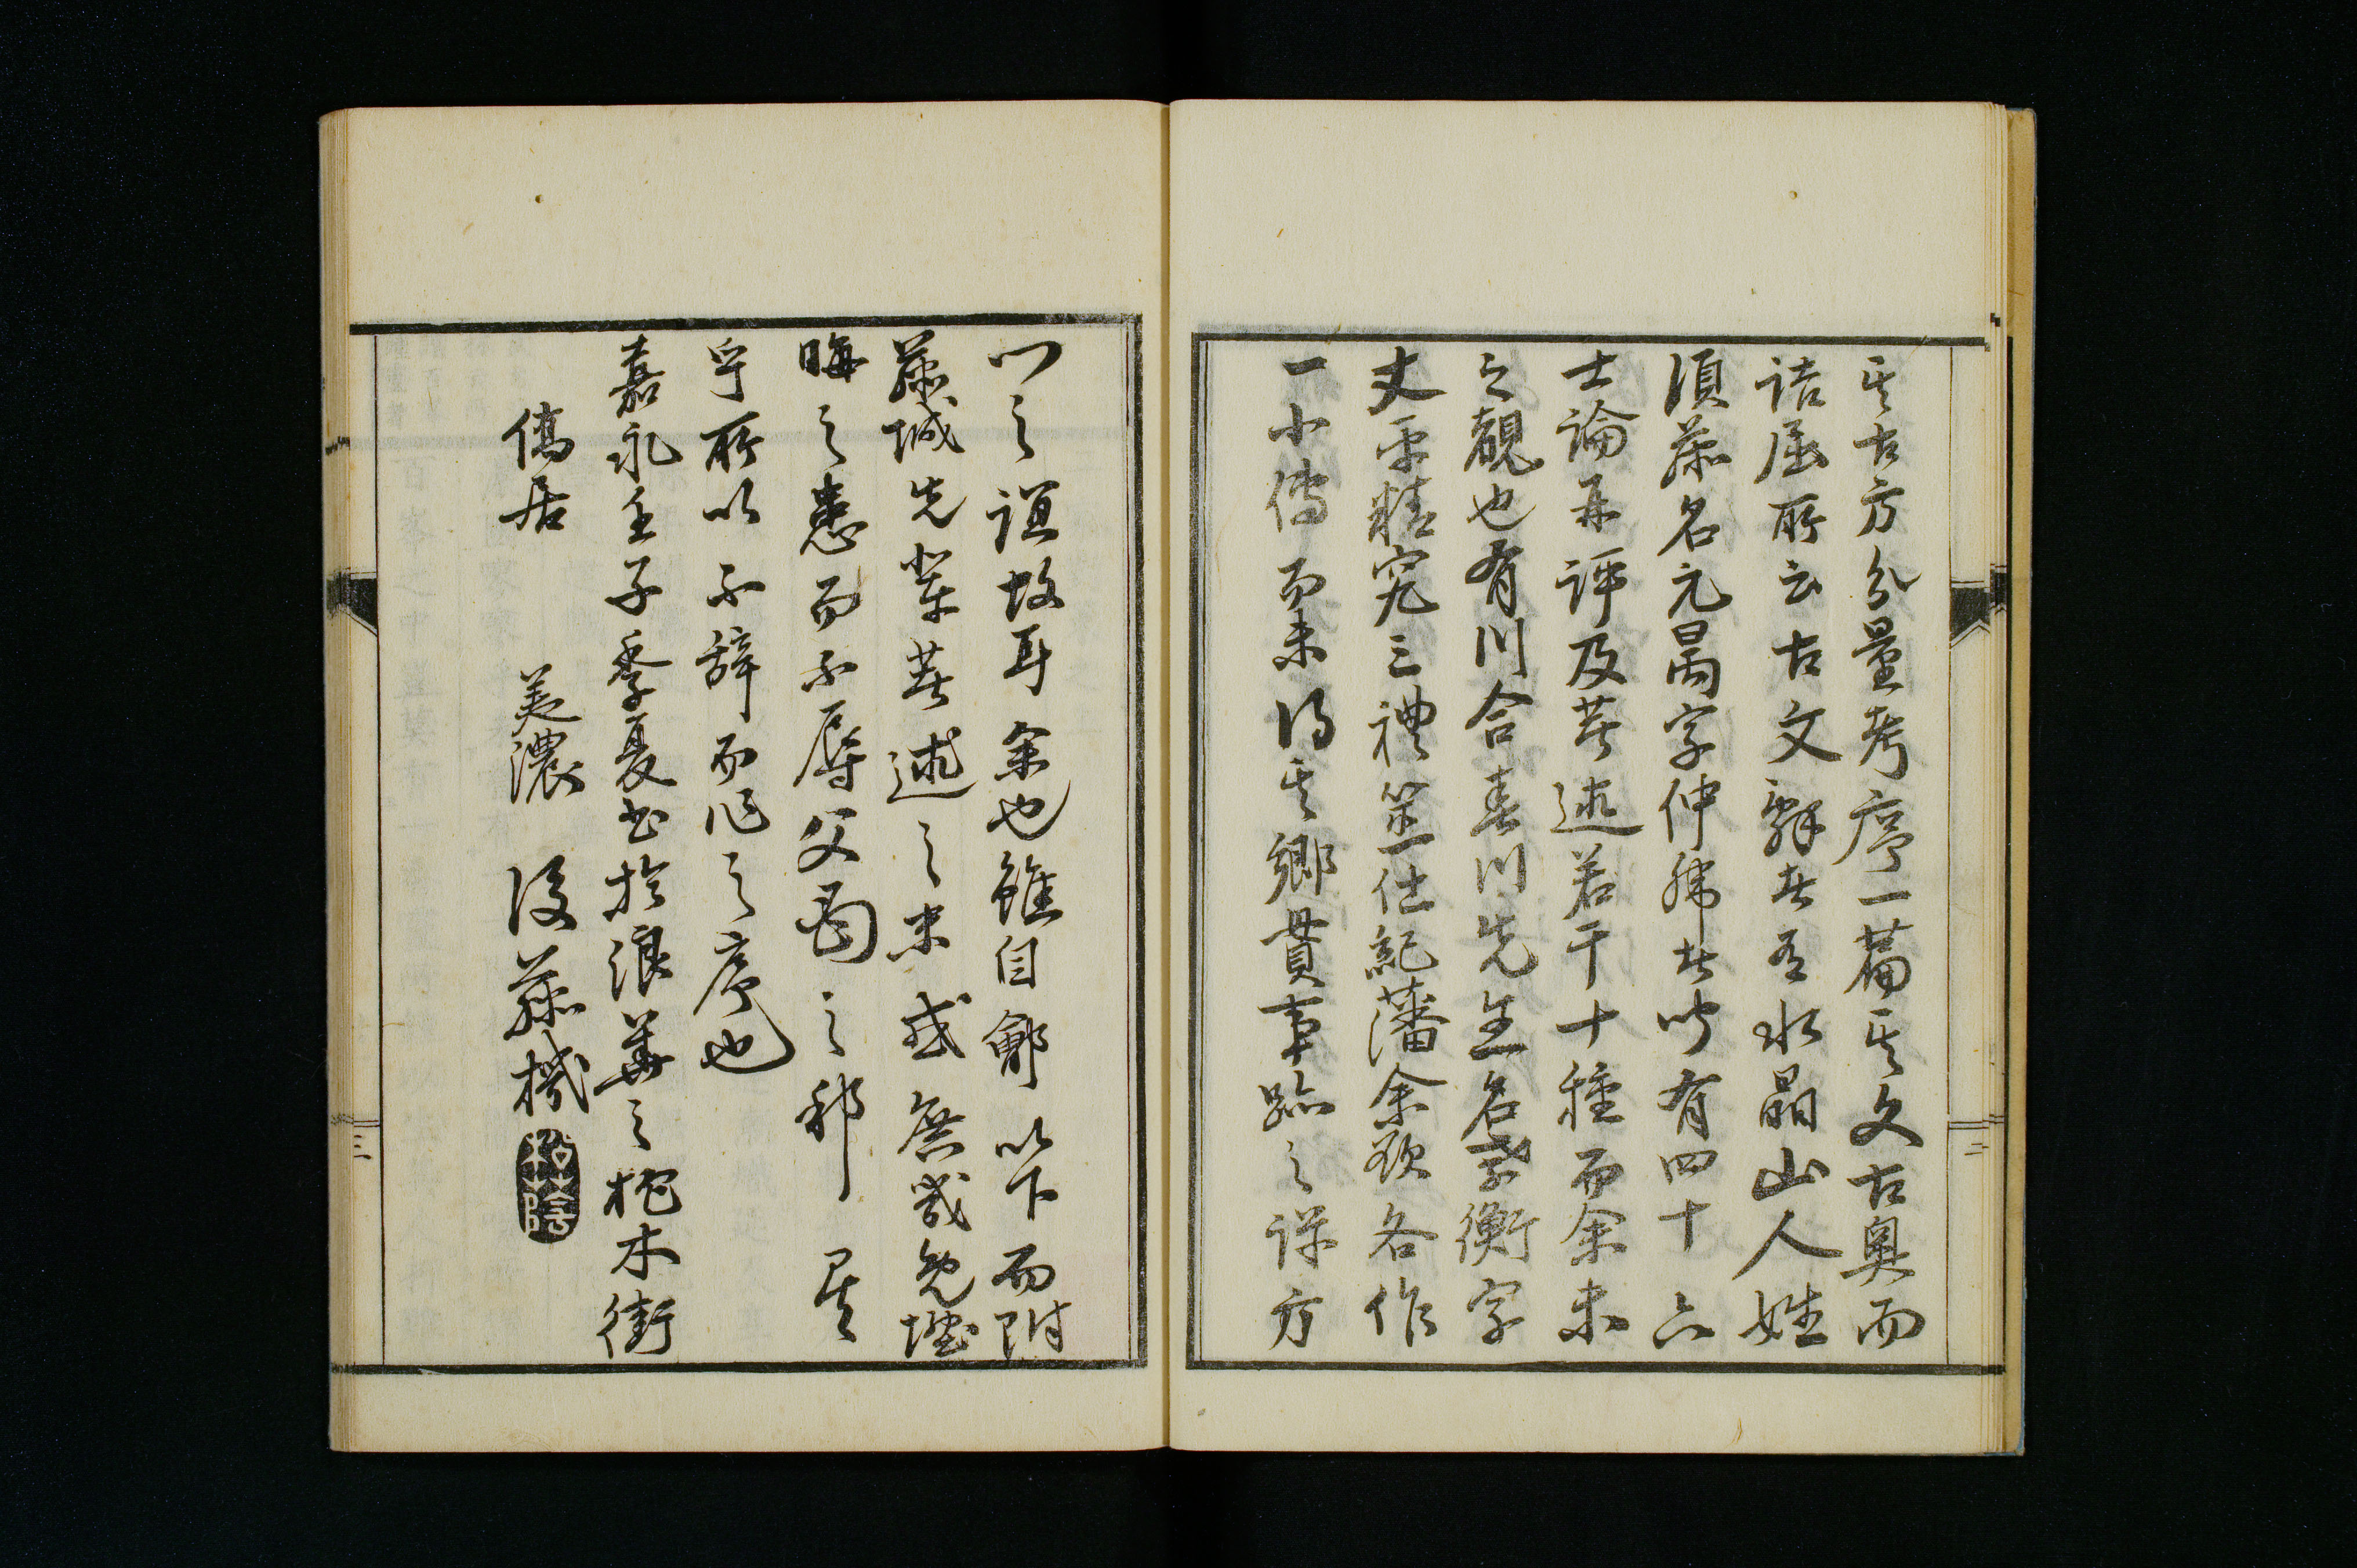 其古方分量考序一篇其文古奧而
詰屈所云古文辭者吾水晶山人姓
須藤名元昺字仲緯者些有四十六
士論再評及著述若干十種而余未
之覩也有川合春川先生名衡字
丈平精究三禮筮仕紀藩余欲各作
一小傳而未得其鄉貫事跡之詳方
以之誼故耳余也雖自鄶以下而附
藤城先輩著述之末或庶幾免堙
晦之患而不辱父圖之邪 異
乎所以不辭而作之序也
嘉永壬子季夏書於浪華之枇木街
僑居
美濃 後藤機
松陰
三